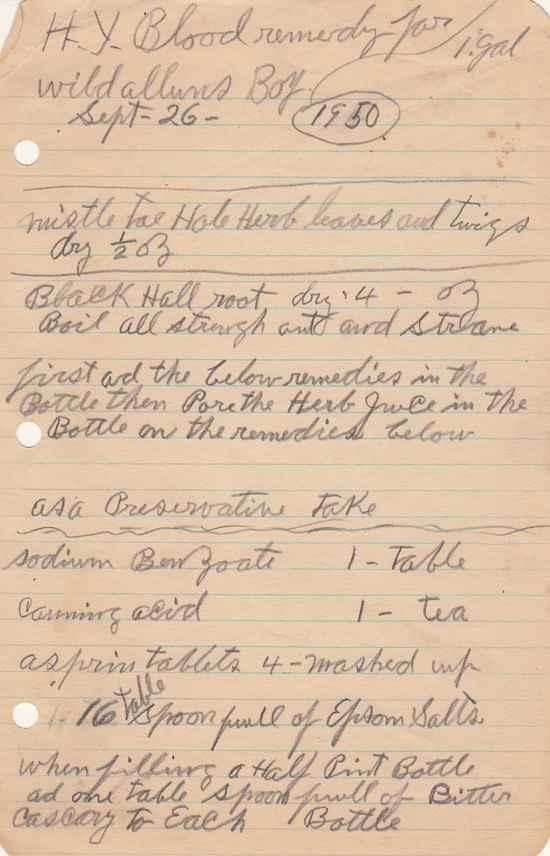 H.Y. Blood remedy for 1. gal
wild alluns Boy
Sept - 26 - 1950
mistle toe Hole Herb leaves and twigs
dry ½ oz
Black Hall root dry . 4 - oz
Boil all strength out and Strane
first ad the below remedies in the
Bottle then Pore the Herb Juice in the
Bottle on the remedies below
as a Preservative Take
sodium Benzoate 1 - Table
Canning acid 1 - tea
asprin tablets 4 - mashed up
16 table spoon full of Epsom Salts
when filling a Half Pint Bottle
ad one table spoon full of Bitter
Cascary to Each Bottle